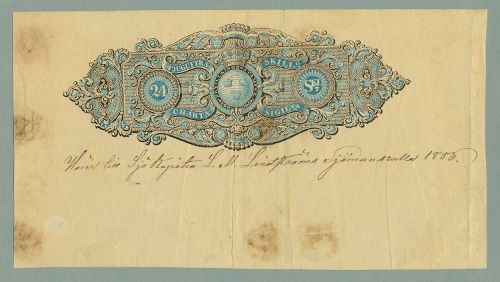 TJUGUFYRA SKILL:R
24
CHARTA SIGILL:
Sjö Kapiten L. M. Lindströms Sjömansrulla 1856.